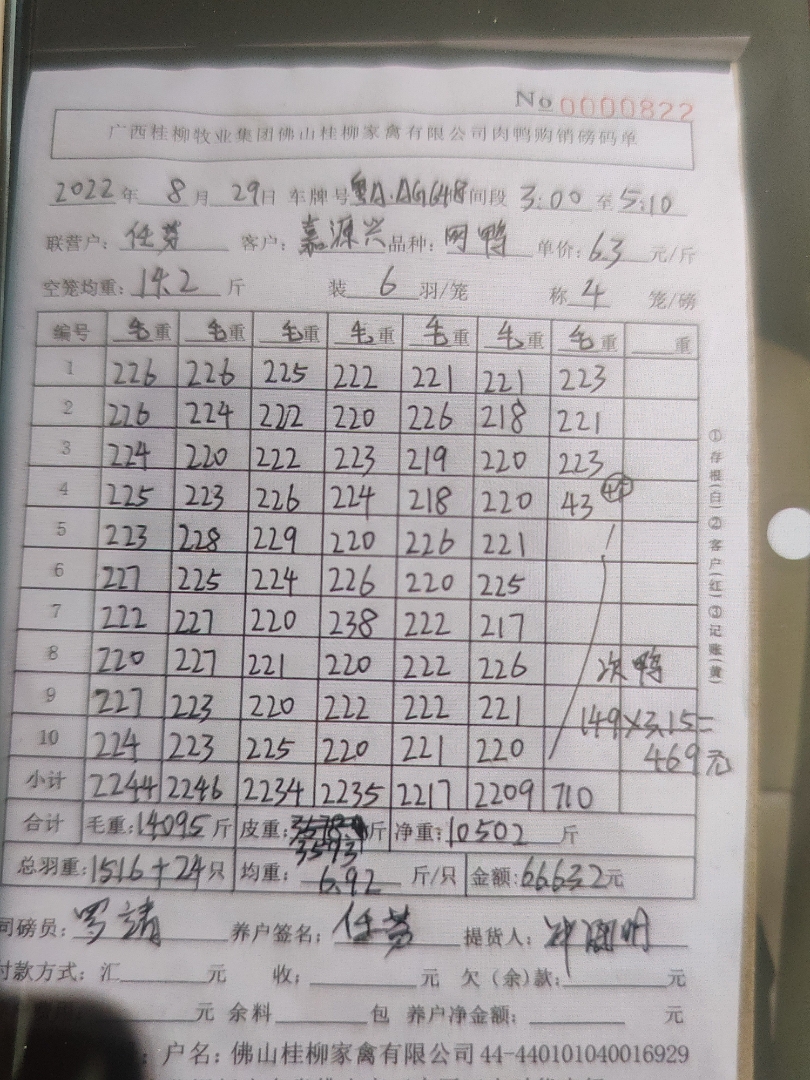 No 0000822
广西桂柳牧业集团佛山桂柳家禽有限公司肉鸭购销磅码单
2022年 8月 29日 车牌号粤A·AG648间段 3:00 至5:10
联营户：任芬 客户：嘉源兴 品种：网鸭 单价：6.3 元/斤
空笼均重：14.2 斤 装 6 羽/笼 称 4 笼/磅
编号 毛重 毛重 毛重 毛重 毛重 毛重 毛重 重
1 226 226 225 222 221 221 223
2 226 224 222 220 226 218 221
3 224 220 222 223 219 220 223
4 225 223 226 224 218 220 43
5 223 228 229 220 226 221
6 227 225 224 226 220 225
7 222 227 220 238 222 217
8 220 227 221 220 222 226 次鸭
9 227 223 220 222 222 221 149×3.15=
10 224 223 225 220 221 220 469元
小计 2244 2246 2234 2235 2217 2209 710
合计 毛重：14095斤 皮重：3593斤 净重：10502 斤
总羽重：1516+24只 均重：6.92 斤/只 金额：66632元
司磅员： 养户签名：任芬 提货人：
付款方式：汇 元 收： 元 欠（余）款： 元
元 余料 包 养户净金额： 元
户名：佛山桂柳家禽有限公司44-440101040016929
①存根(白)②客户(红)③记账(黄)